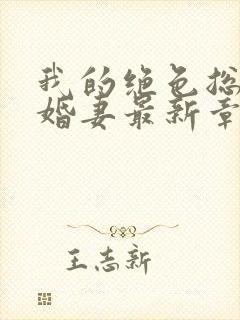 我的绝色总
婚妻最新章
王志新